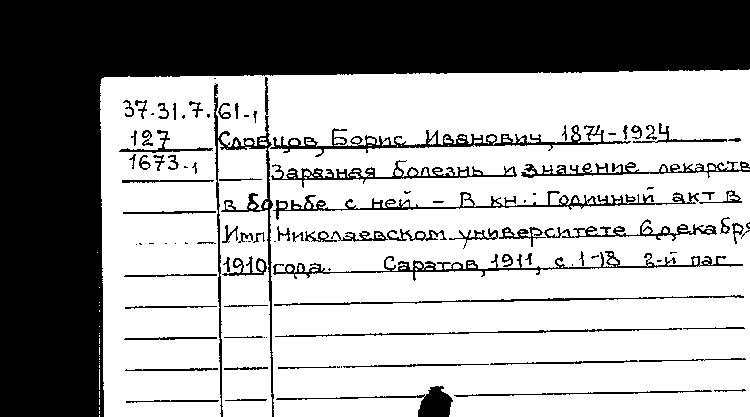 37.31.7.61-1
127 Словцов, Борис Иванович, 1874-1924
1673-1 Заразная болезнь и значение лекарств
в борьбе с ней. - В кн.: Годичный акт в
Имп. Николаевском университете 6 декабря
1910 года. Саратов, 1911, с. 1-18 2-й паг